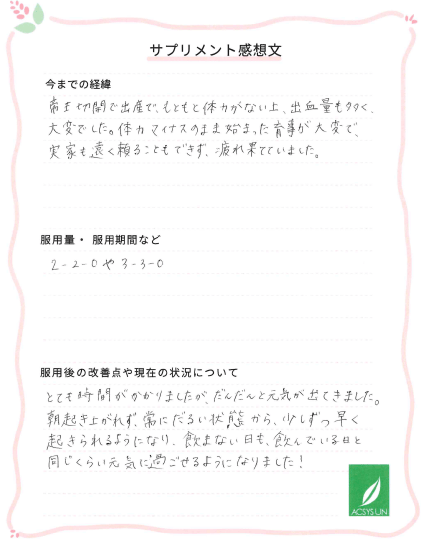 サプリメント感想文
今までの経緯
帝王切開で出産で、もともと体力がない上、出血量も多く、
大変でした。体力マイナスのまま始まった育事が大変で、
実家も遠く頼ることもできず、疲れ果てていました。
服用量・服用期間など
2-2-0や3-3-0
服用後の改善点や現在の状況について
とても時間がかかりましたが、だんだんと元気が出てきました。
朝起き上がれず、常にだるい状態から、少しずつ早く
起きられるようになり、飲まない日も、飲んでいる日と
同じくらい元気に過ごせるようになりました!
ACSYSLIN